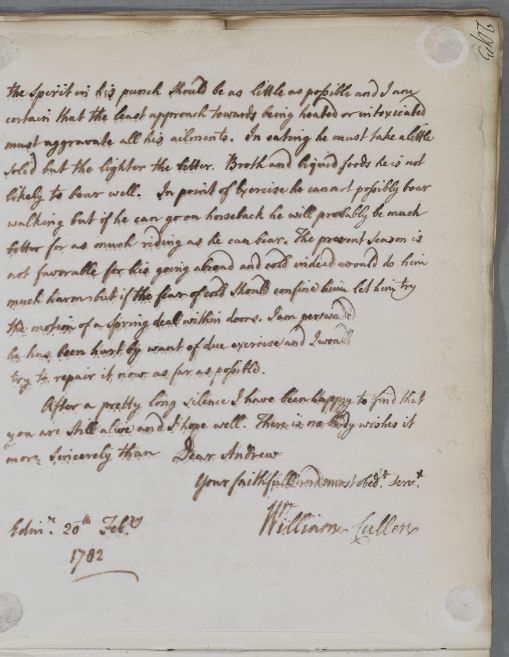 the Spirit in his punch should be as little as possible and I am
certain that the least approach towards being heated or intoxicated
must aggravate all his ailments. In eating he must take a little
solid but the lighter the better. Broth and liquid foods he is not
likely to bear well. In point of Exercise he cannot possibly bear
walking but if he can go on horseback he will probably be much
better for as much riding as he can bear. The present season is
not favorable for his going abroad and cold indeed would do him
much harm but if the fear of cold should confine him let him try
the motion of a Spring deal within doors. I am perswaded
he has been hurt by want of due exercise and I would
try to repair it now as far as possible.
After a pretty long silence I have been happy to find that
you are still alive and I hope well. There is no body wishes it
more sincerely than Dear Andrew
Your faithfull and most obedt. Servt
William Cullen
Edinr. 20th Febry
1782